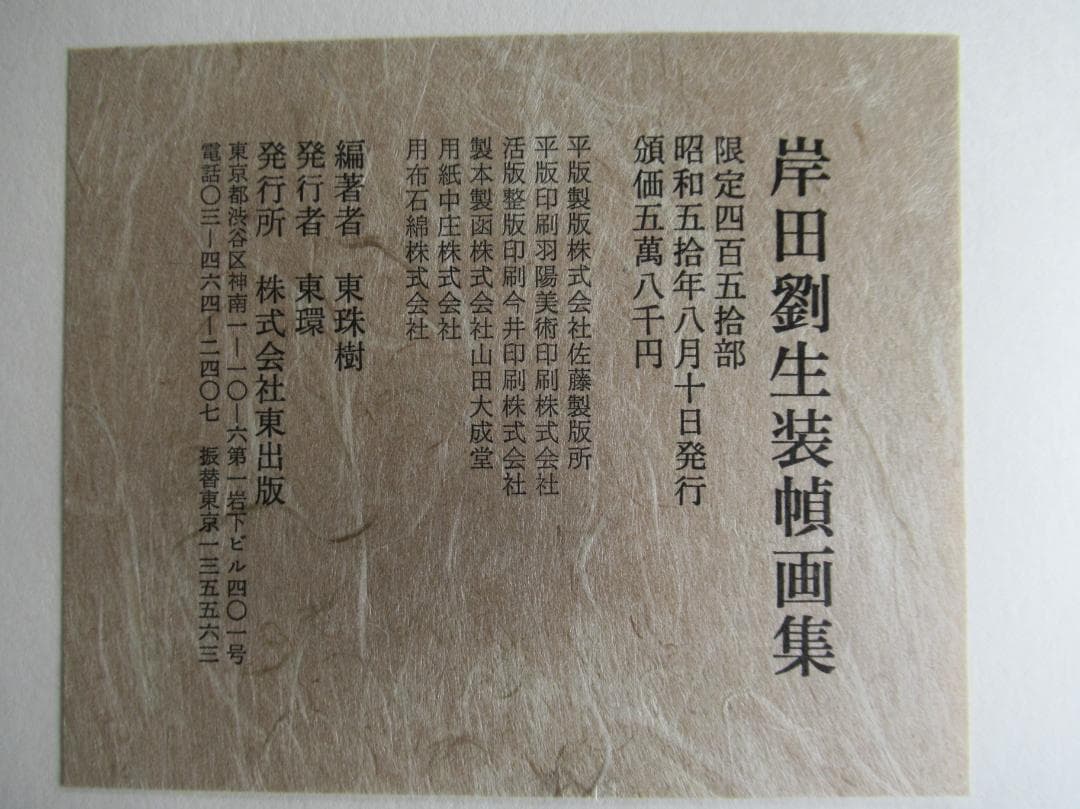 岸田劉生装幀画集
限定四百五拾部
昭和五拾年八月十日発行
頒価五萬八千円
平版製版株式会社佐藤製版所
平版印刷羽陽美術印刷株式会社
活版整版印刷今井印刷株式会社
製本製函株式会社山田大成堂
用紙中庄株式会社
用布石綿株式会社
編著者　東珠樹
発行者　東環
発行所　株式会社東出版
東京都渋谷区神南一ー一〇ー六第一岩下ビル四〇一号
電話〇三ー四六四ー二四〇七　振替東京一三五五六三